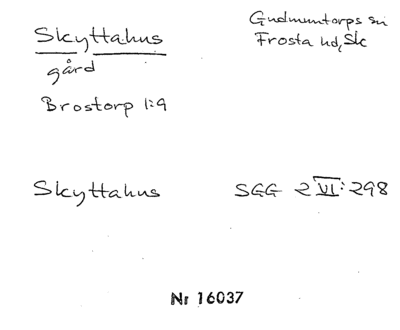 Skyttahus
Gudmuntorps sn
Frosta hd, Sk
gård
Brostorp 1:9
Skyttahus
SGG 2 VI: 298
Nr 16037